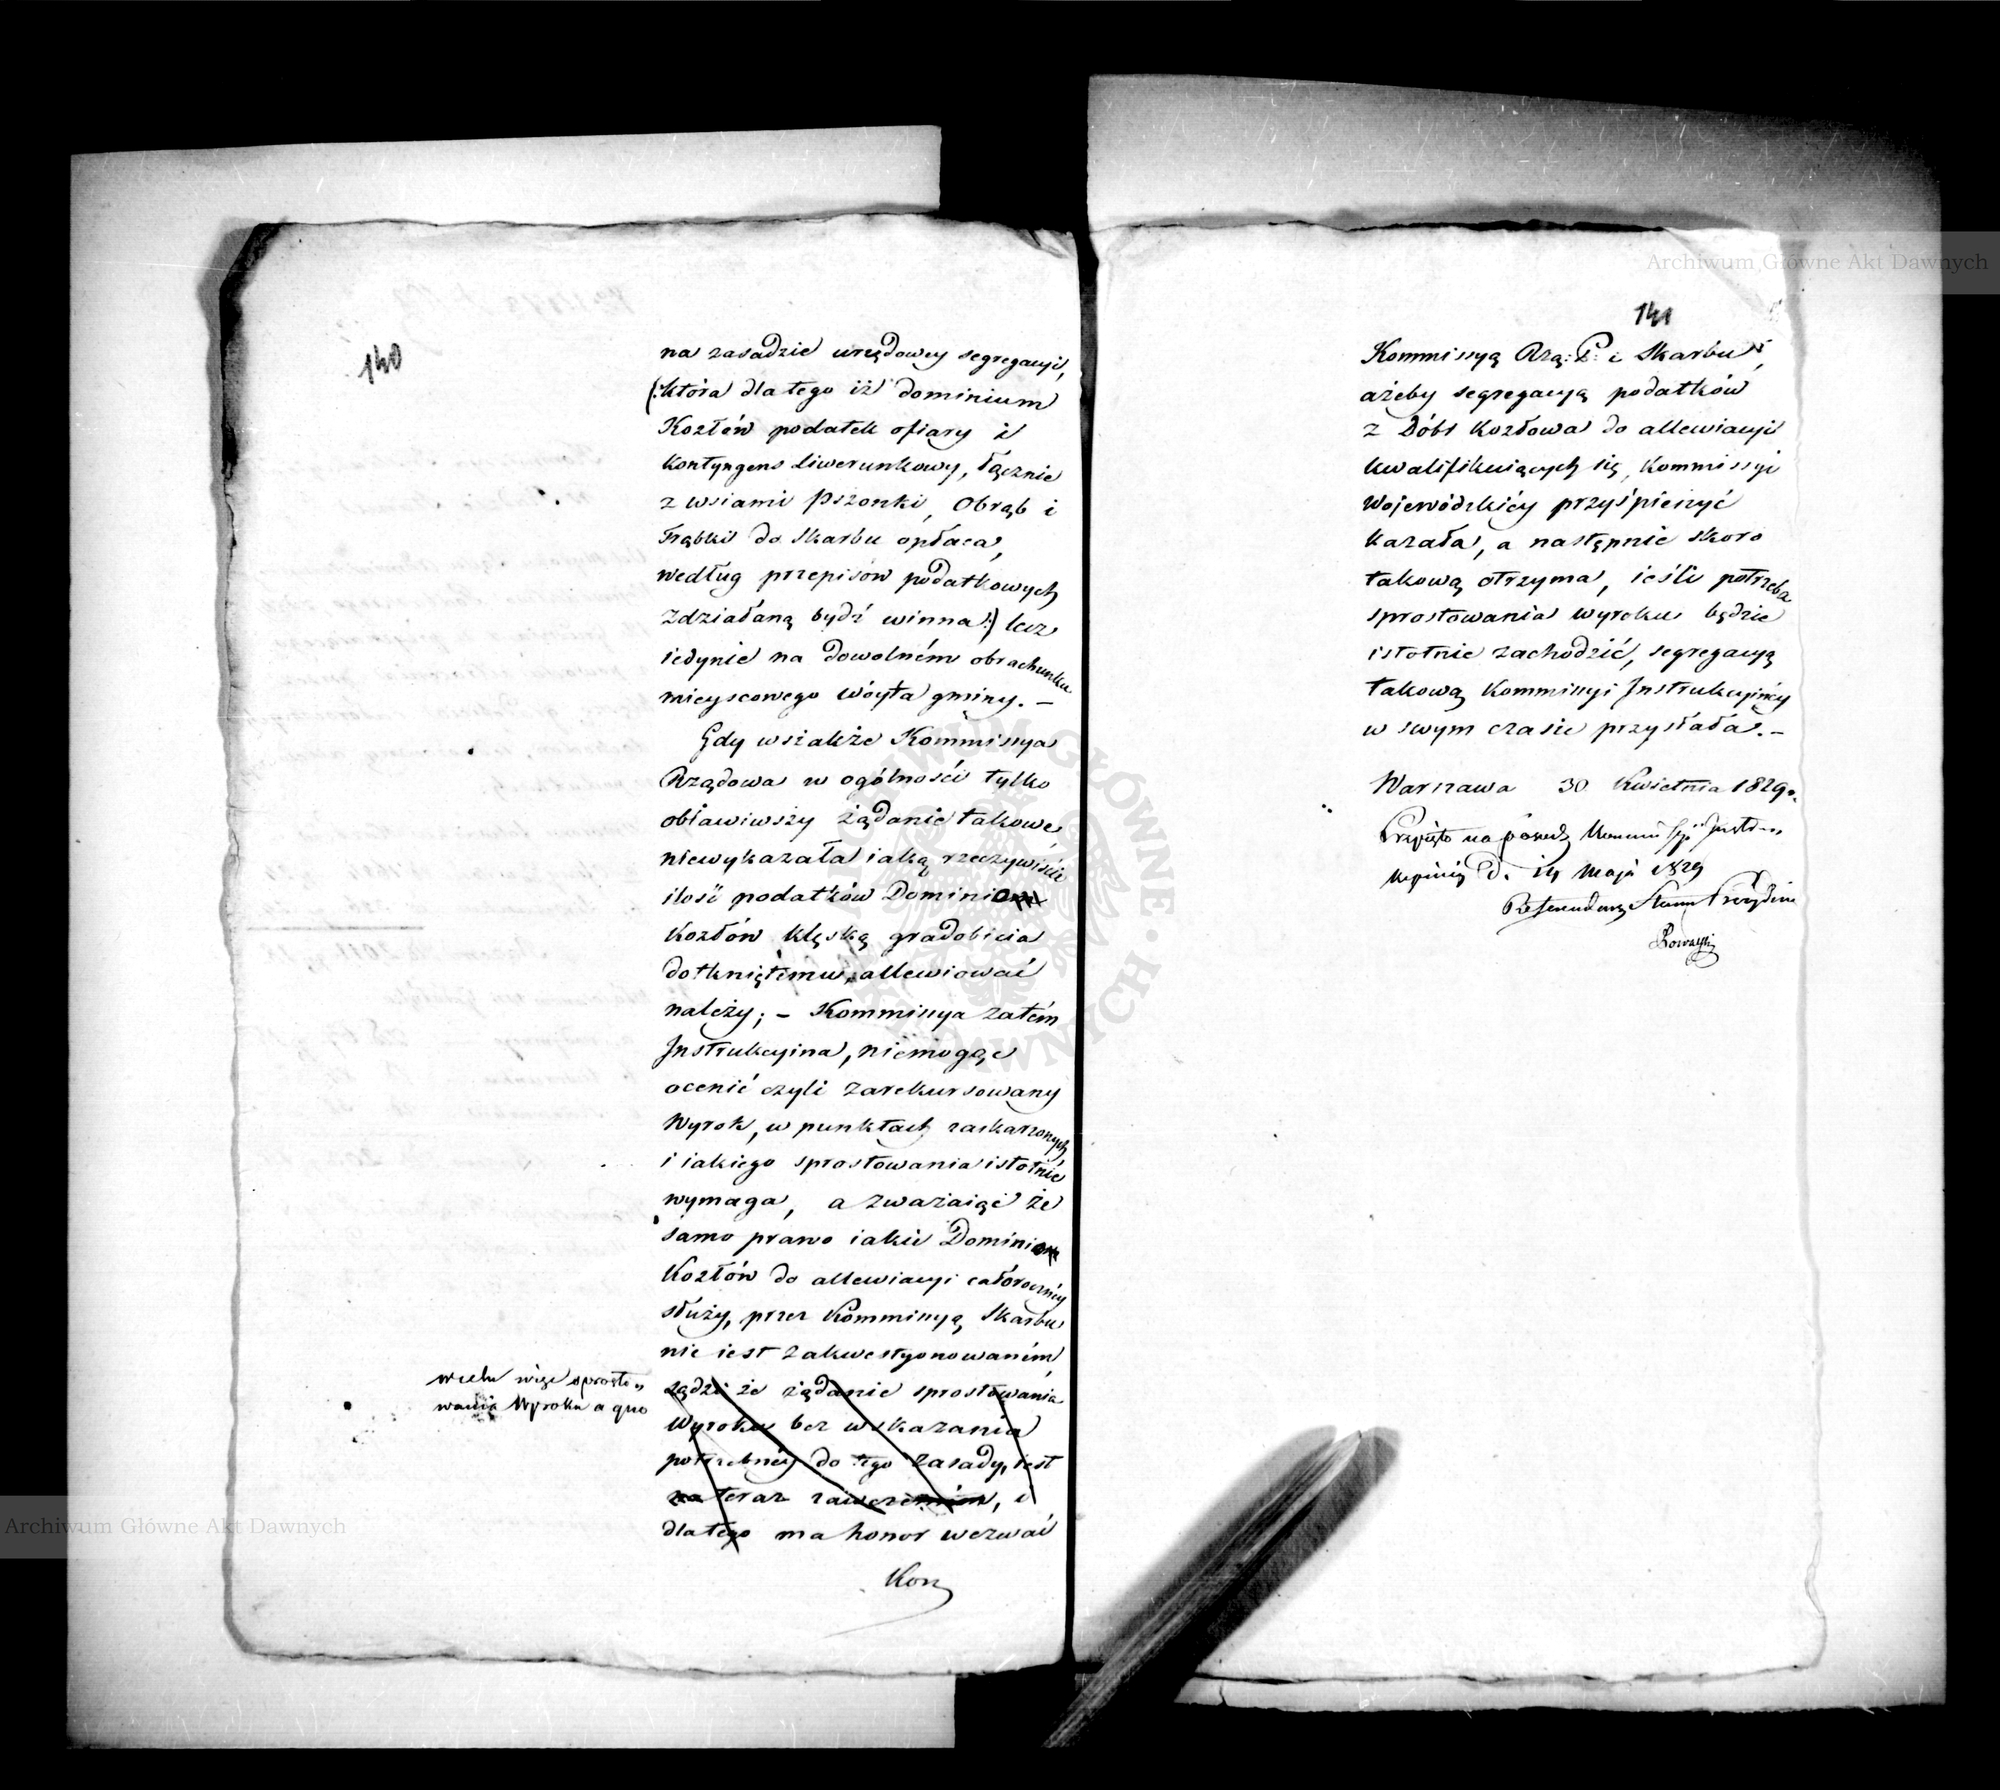 140
na zasadzie urzędowey segregacyi,
(:która dla tego iż dominium
Kozłów podatek ofiary i
kontyngens liwerunkowy, łącznie
z wsiami Pszonki, Obrąb i
Trąbki do Skarbu opłaca,
według przepisów podatkowych
zdziałaną bydź winna:) lecz
iedynie na dowolném obrachunku
mieyscowego wóyta gminy. –
Gdy wszakże Kommissya
Rządowa w ogólności tylko
obiawiwszy żądanie takowe,
niewykazała iaką rzeczywiście
ilość podatków Domini
Kozłów klęską gradobicia
dotkniętemu, allewiować
należy; – Kommissya zatém
Instrukcyina, niemogąc
ocenić czyli zarekursowany
Wyrok, w punktach zaskarżonych,
i iakiego sprostowania istotnie
wymaga, a zważaiąc że
samo prawo iakie Domini
Kozłów do allewiacyi całoroczney
służy, przez Kommissyą Skarbu
nie iest zakwestyonowaném,
sądzi że żądanie sprostowania
Wyroku bez wskazania
potrzebnéy do tego zasady, iest
na teraz, i
dla tego ma honor wezwać
Kom
w celu więc sprosto„
wania Wyroku a quo
141
Kommissyą Rzą: P: i Skarbu,
ażeby segregacyą podatków
z Dóbr Kozłowa do allewiacyi
kwalifikuiących się, Kommissyi
Woiewódzkiéy przyśpieszyć
kazała, a następnie skoro
takową otrzyma, ieśli potrzeba
sprostowania wyroku będzie
istotnie zachodzić, segregacyą
takową Kommissyi Instrukcyinéy
w swym czasie przysłała. –
Warszawa 30 Kwietnia 1829.
Przyięto na posiedz Kommissyi Instru„
kcyinéy D. 14 Maja 1829
Referendarz Stanu Prezyduiący
Archiwum Główne Akt Dawnych
Archiwum Główne Akt Dawnych